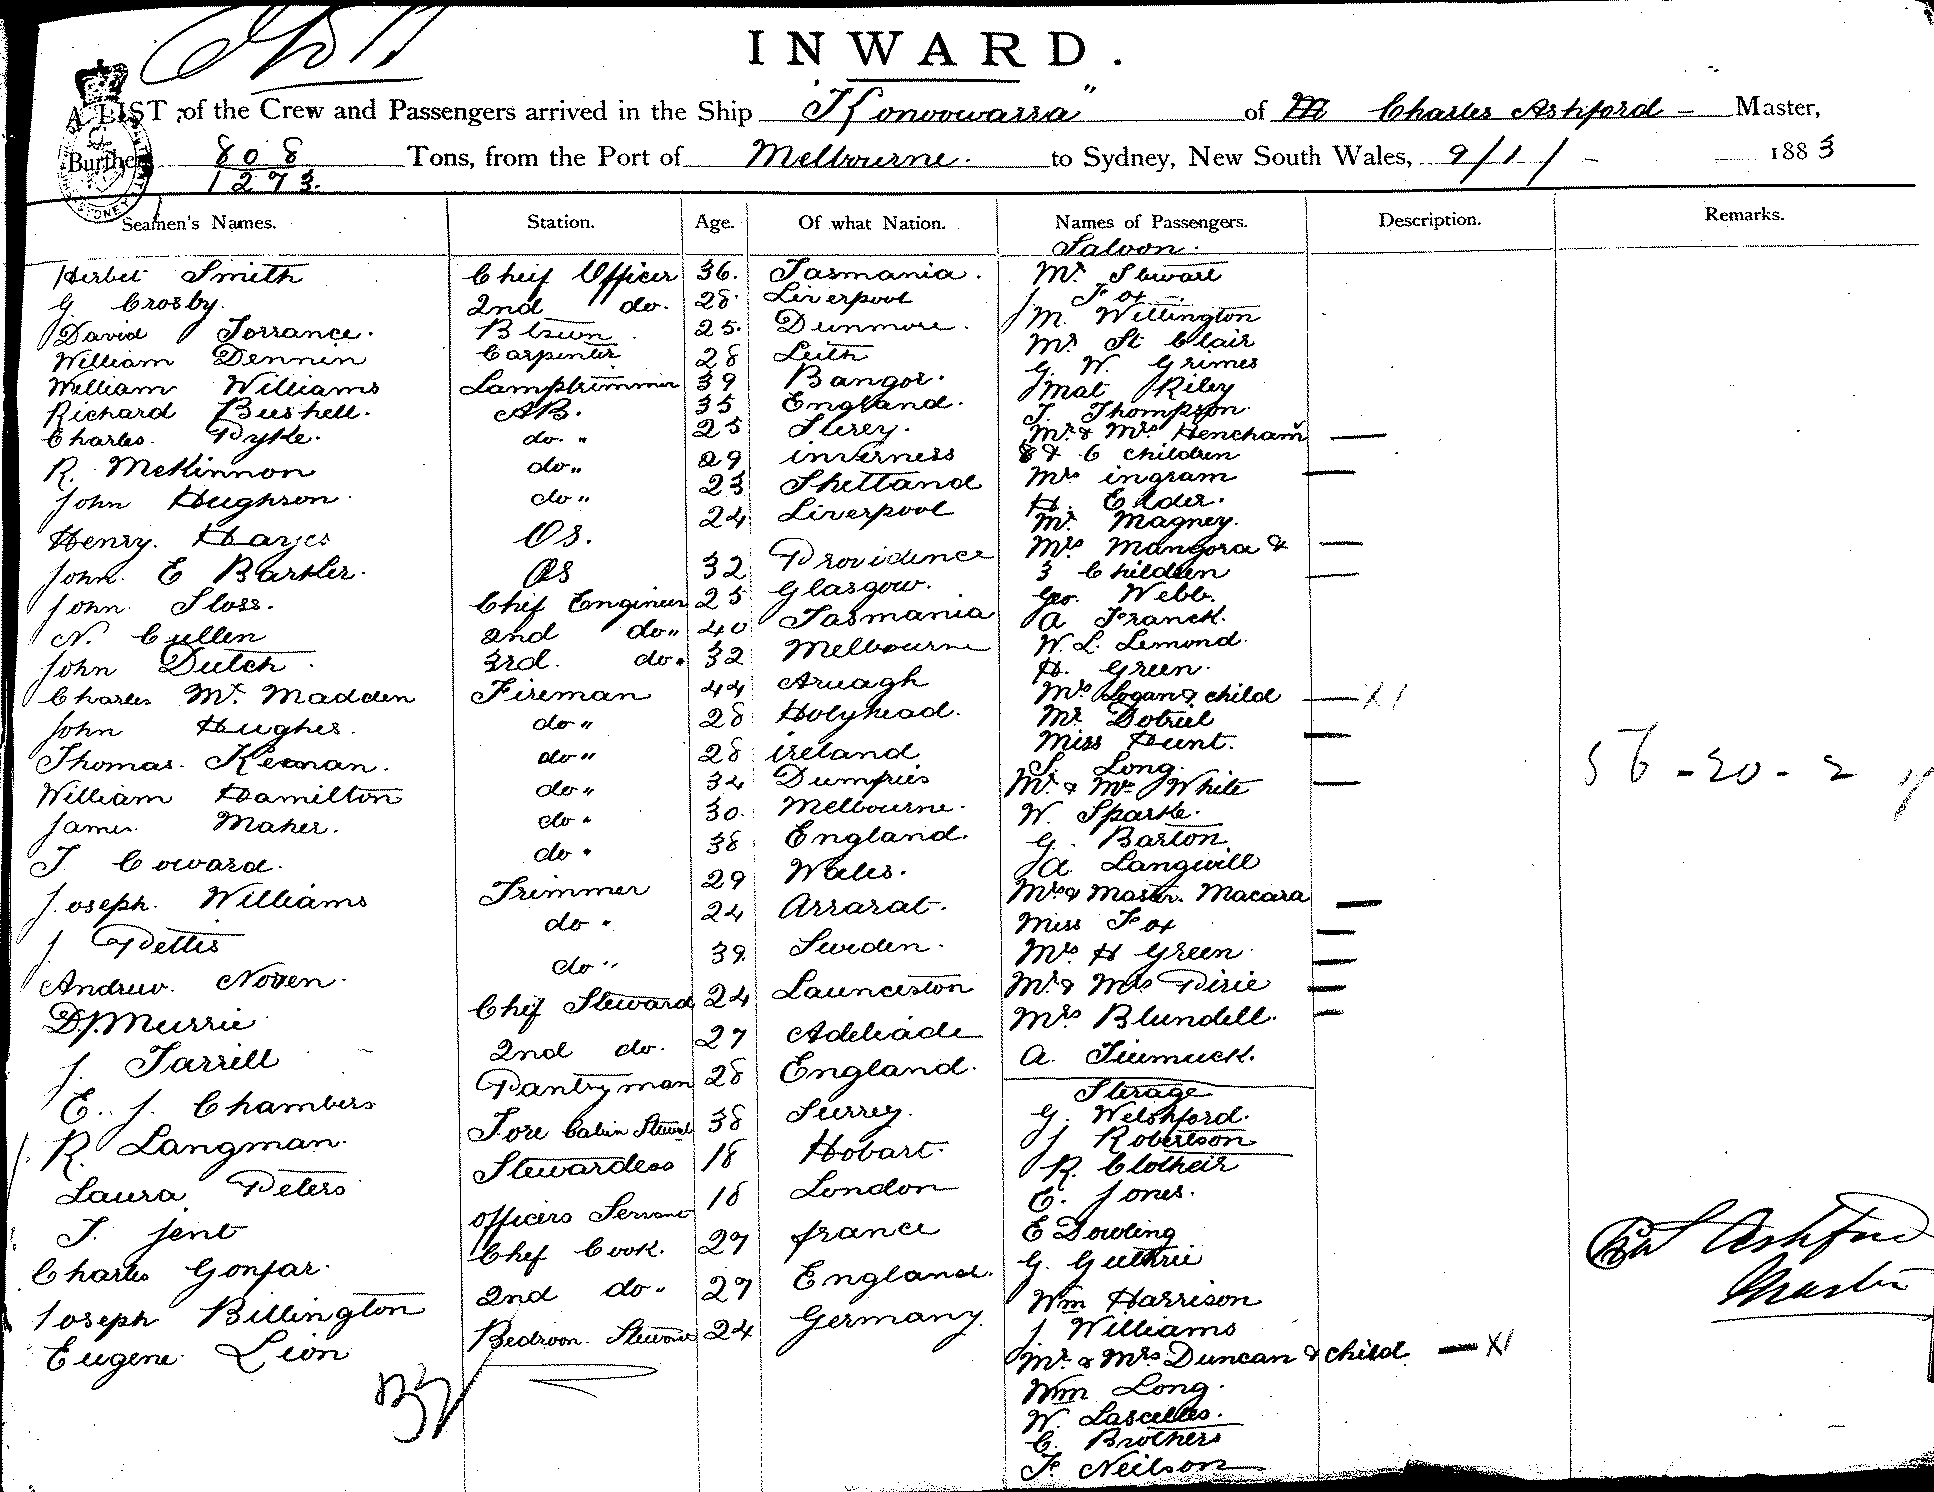 INWARD.
A LIST of the Crew and Passengers arrived in the Ship "Konoowarra" of M Charles Ashford - Master,
Burthen 808 Tons, from the Port of Melbourne. to Sydney, New South Wales, 9/1/ - 1883
1273.
Seamen's Names. Station. Age. Of what Nation. Names of Passengers. Description. Remarks.
Saloon.
Herbet Smith Cheif Officer 36. Tasmania. Mr Stewart
G Crosby. 2nd do. 28. Liverpool J. Fox
David Torrance. Btsun 25. Dunmore. M. Willington
William Dennen Carpenter 28 Leith Mr St Clair
William Williams Lamptrimmer 39 Bangor. G. W. Grimes
Richard Bushell. AB. 35 England. Mat Riley
Charles Pyke. do. " 25 Surey. T. Thompson.
R. McKinnon do " 29 inverness Mr & Mrs Hencham
John Hughson do " 23 Shetland & 6 children
Henry. Hayes Os. 24 Liverpool Mrs ingram
John E Barkler. OS 32 Providence H. Elder.
John Sloss. Chif Engineer 25 Glasgow. Mr. Magney.
N. Cullen 2nd do " 40 Tasmania Mrs Mangora &
John Dutch 3rd. do " 32 Melbourne 3 Children
Charles Mc Madden Fireman 44 Armagh Geo. Webb.
John Hughes. do " 28 Holyhead. A Franck.
Thomas. Keenan. do " 28 ireland W. L. Lemond.
William Hamilton do " 34 Dumfries H. Green.
James Maher. do " 30. Melbourne. Mrs Logan & child X1
T Coward. do " 38 England. Mr
Joseph. Williams Trimmer 29 Wales. Miss Hunt.
J Pettis do " 24 Ararat. S. Long.
Andrew. Noven. do " 39 Sweden. Mr & Mrs White
D. J. Murrie Chif Steward 24 Launceston W. Sparke.
J. Tarrell 2nd do. 27 Adeliade G. Barton
E. J. Chambers Pantryman 28 England. A. Langwill
R. Langman. Fore Cabin Steward 38 Surrey. Mrs & Master. Macara
Laura Peters Stewardess 18 Hobart. Miss Fox
T. jent officers Servant 18 London Mrs H Green
Charles Gonfar. Chef Cook. 27 france Mr & Mrs Pirie
Joseph Billington 2nd do " 27 England. Mrs Blundell.
Eugene Lion Bedroom Steward 24 Germany. A.
Sterage
G. Welshford.
J Robertson
R. Clotheir
E. Jones.
E Dowling
G. Guthrie
Wm Harrison
J. Williams
Mr & Mrs Duncan & child X1
Wm Long.
W. Lascelles.
C. Brothers
F. Neilson
56 - 20 - 2
Ashford
Master